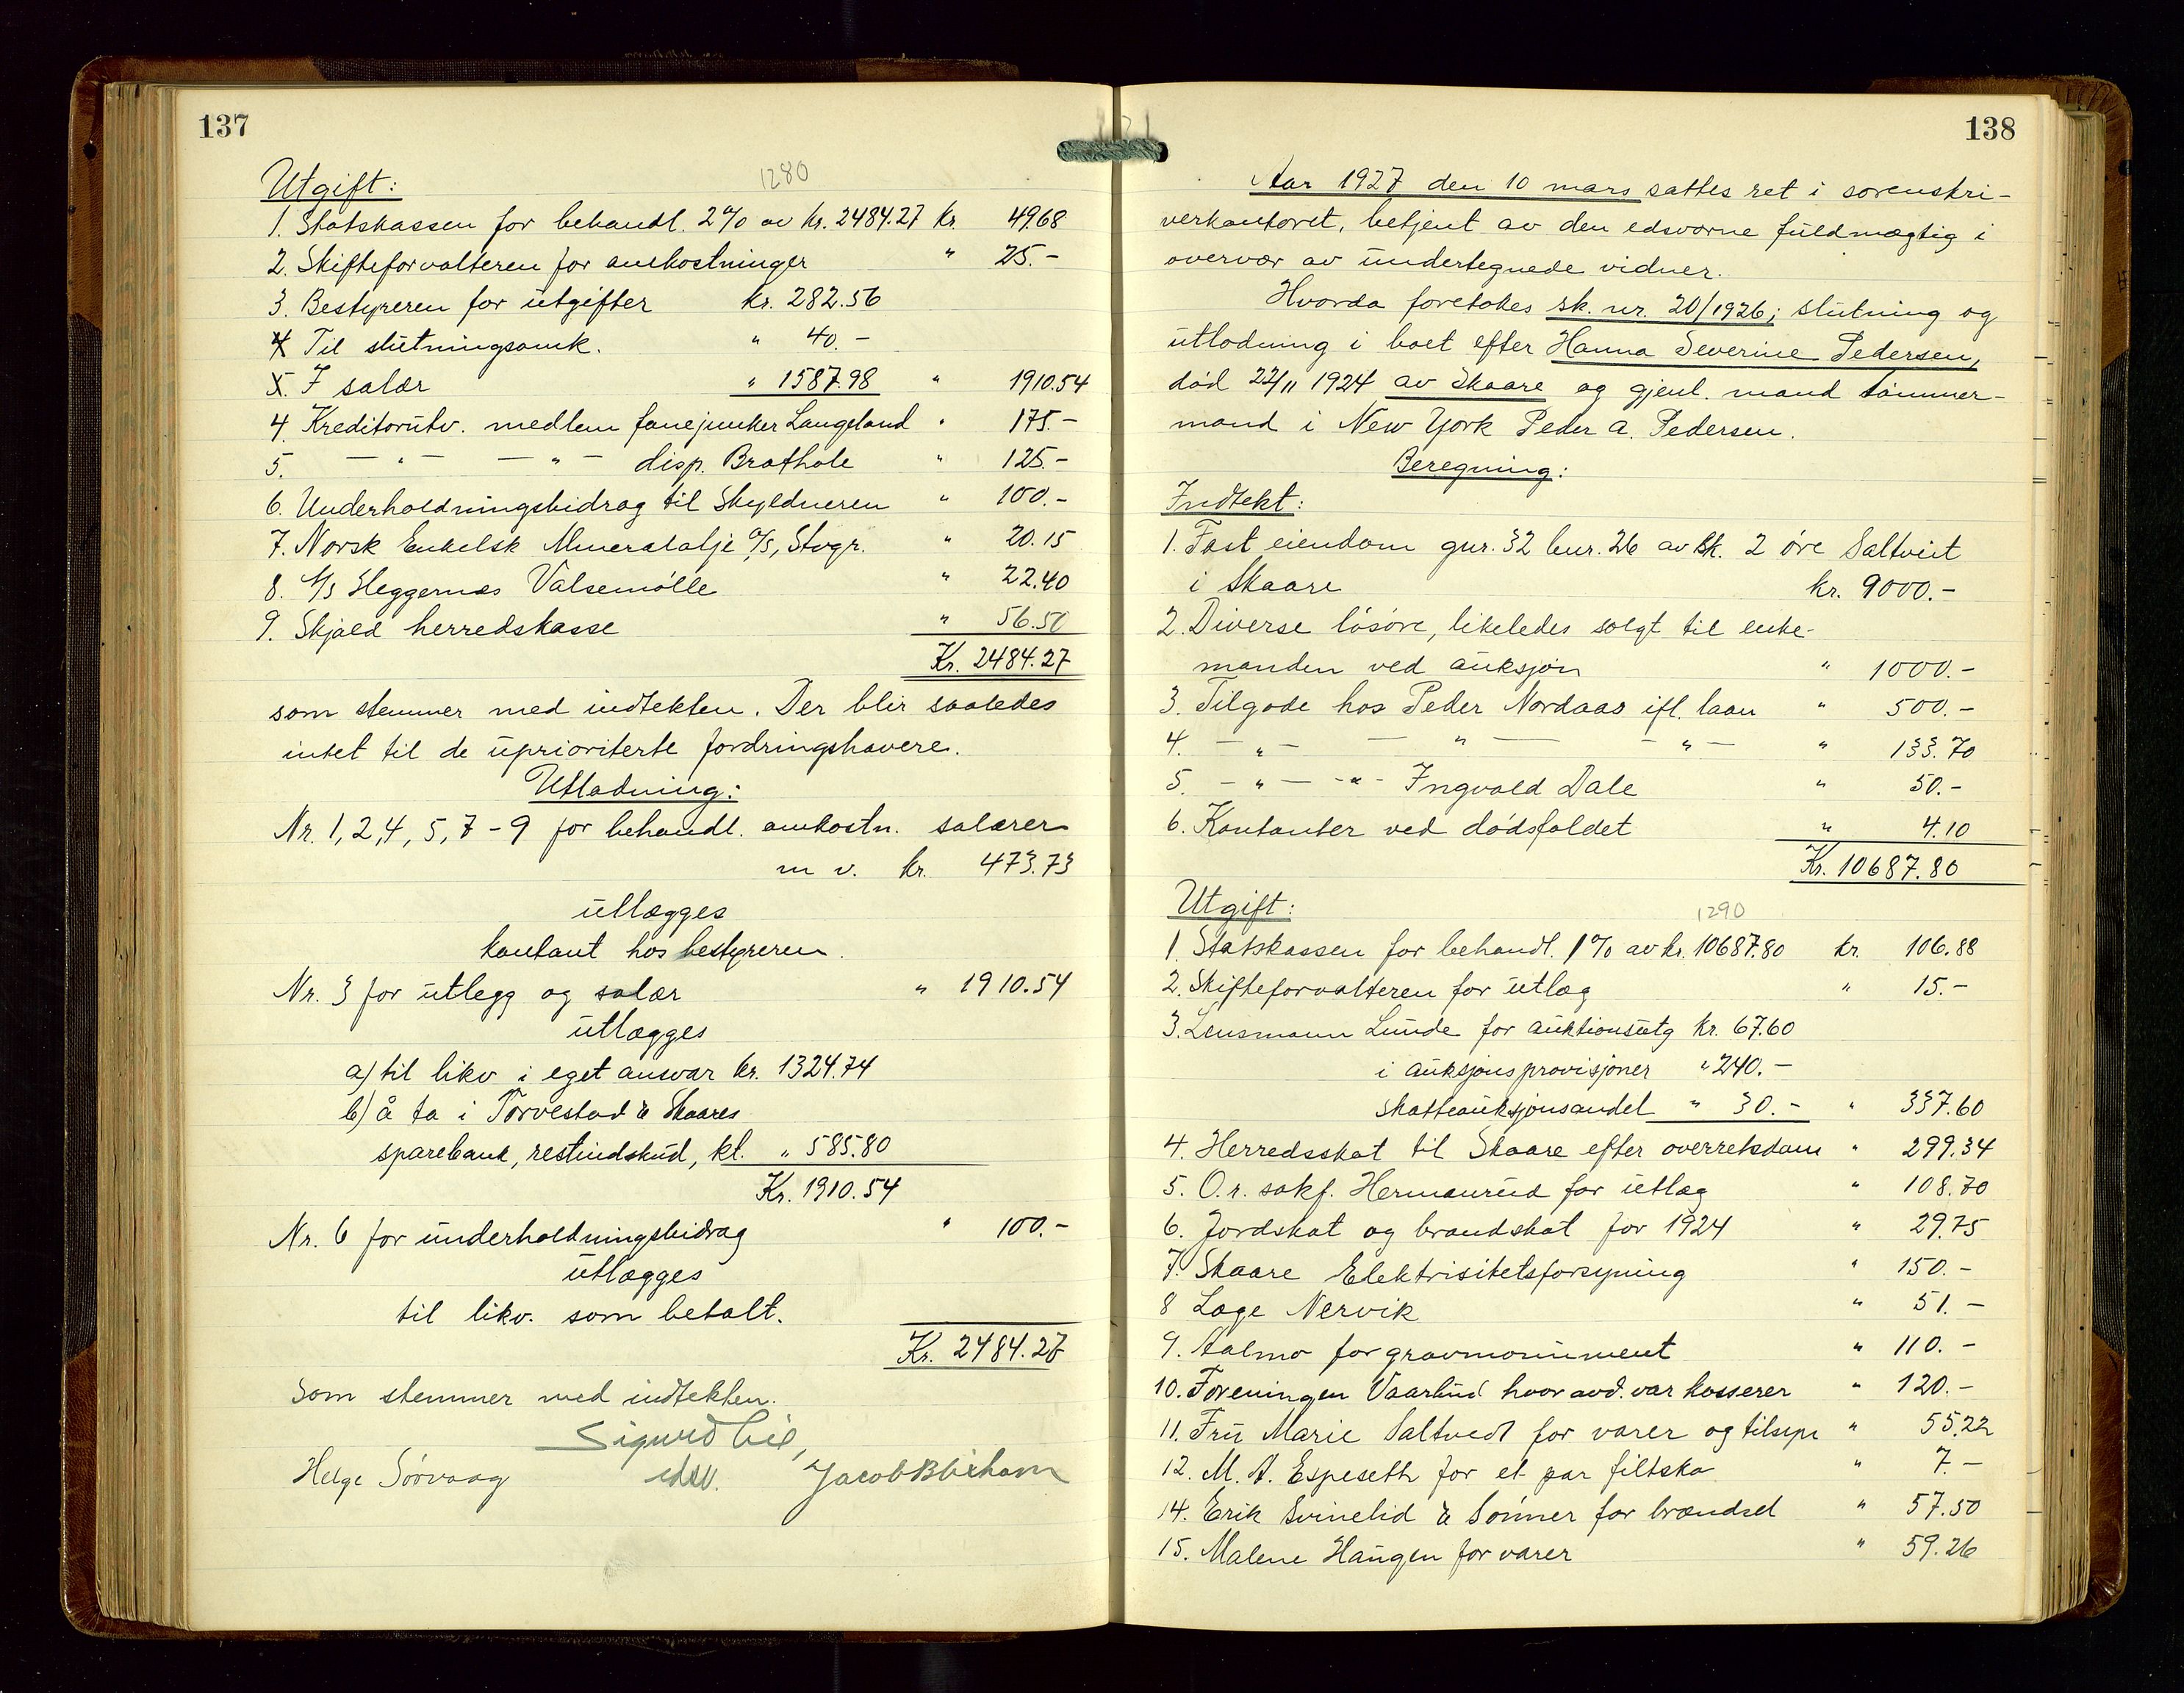 137
Utgift:
1280
1. Statskassen for behandl. 2% av kr. 2484.27 kr. 49.68
2. Skifteforvalteren for omkostninger " 25.-
3. Bestyreren for utgifter kr. 282.56
4 Til slutningsomk. " 40.-
5. I salær " 1587.98 " 1910.54
4. Kreditorutv. medlem fanejunker Langeland " 175.-
5. - " - - " - disp. Brathole " 125.-
6. Underholdningsbidrag til skyldneren " 100.-
7. Norsk Enkelsk Mineralolje A/S, Stvgr. " 20.15
8. A/S Heggernæs Valsemølle " 22.40
9. Skjold herredskasse " 56.50
Kr. 2484.27
som stemmer med indtekten. Der blir saaledes
intet til de uprioriterte fordringshavere.
Utlodning:
Nr. 1, 2, 4, 5, 7-9 for behandl. omkostn. salærer
m v. kr. 473.73
utlægges
kontant hos bestyreren.
Nr. 3 for utlegg og salær " 1910.54
utlægges
a) til likv i eget ansvar kr. 1324.74
b) å ta i Torvestad & Skaares
sparebank, restindskud, kl. " 585.80
Kr. 1910.54
Nr. 6 for underholdningsbidrag " 100.-
utlægges
til likv. som betalt.
Kr. 2484.27
Som stemmer med indtekten.
Sigurd Lie,
edsv.
Helge Sörvaag
138
Aar 1927 den 10 mars sattes ret i sorenskri-
verkontoret, betjent av den edsvorne fuldmægtig i
overvær av undertegnede vidner.
Hvorda foretokes sk. nr. 20/1926; slutning og
utlodning i boet efter Hanna Severine Pedersen,
død 22/11 1924 av Skaare og gjenl. mand tømmer-
mand i New York Peder A. Pedersen.
Beregning:
Indtekt:
1. Fast eiendom gnr. 32 bnr. 26 av sk. 2 øre Saltveit
i Skaare kr. 9000.-
2. Diverse løsøre, likeledes solgt til enke-
manden ved auksjon " 1000.-
3. Tilgode hos Peder Nordaas ifl. laan " 500.-
4. - " - - " - - " - " 133.70
5. - " - - " - Ingvald Dale " 50.-
6. Kontanter ved dødsfaldet " 4.10
Kr. 10687.80
Utgift:
1290
1. Statskassen for behandl. 1% av kr. 10687.80 kr. 106.88
2. Skifteforvalteren for utlæg " 15.-
3. Lensmann Lunde for auktionsutg kr. 67.60
i auksjonsprovisjoner " 240.-
skatteauksjonsandel " 30.- " 337.60
4. Herredsskat til Skaare efter overretsdom " 299.34
5. O.r. sakf. Hermanrud for utlæg " 108.70
6. Jordskat og brandskat for 1924 " 29.75
7. Skaare Elektrisitetsforsyning " 150.-
8 Læge Nervik " 51.-
9. Aalmo for gravmonument " 110.-
10. Foreningen Vaarbud hvor avd. var kasserer " 120.-
11. Fru Marie Saltvedt for varer og tilsyn " 55.22
12. M. A. Espeseth for et par filtsko " 7.-
14. Erik Svinelid & Sønner for brændsel " 57.50
15. Malene Haugen for varer " 59.26